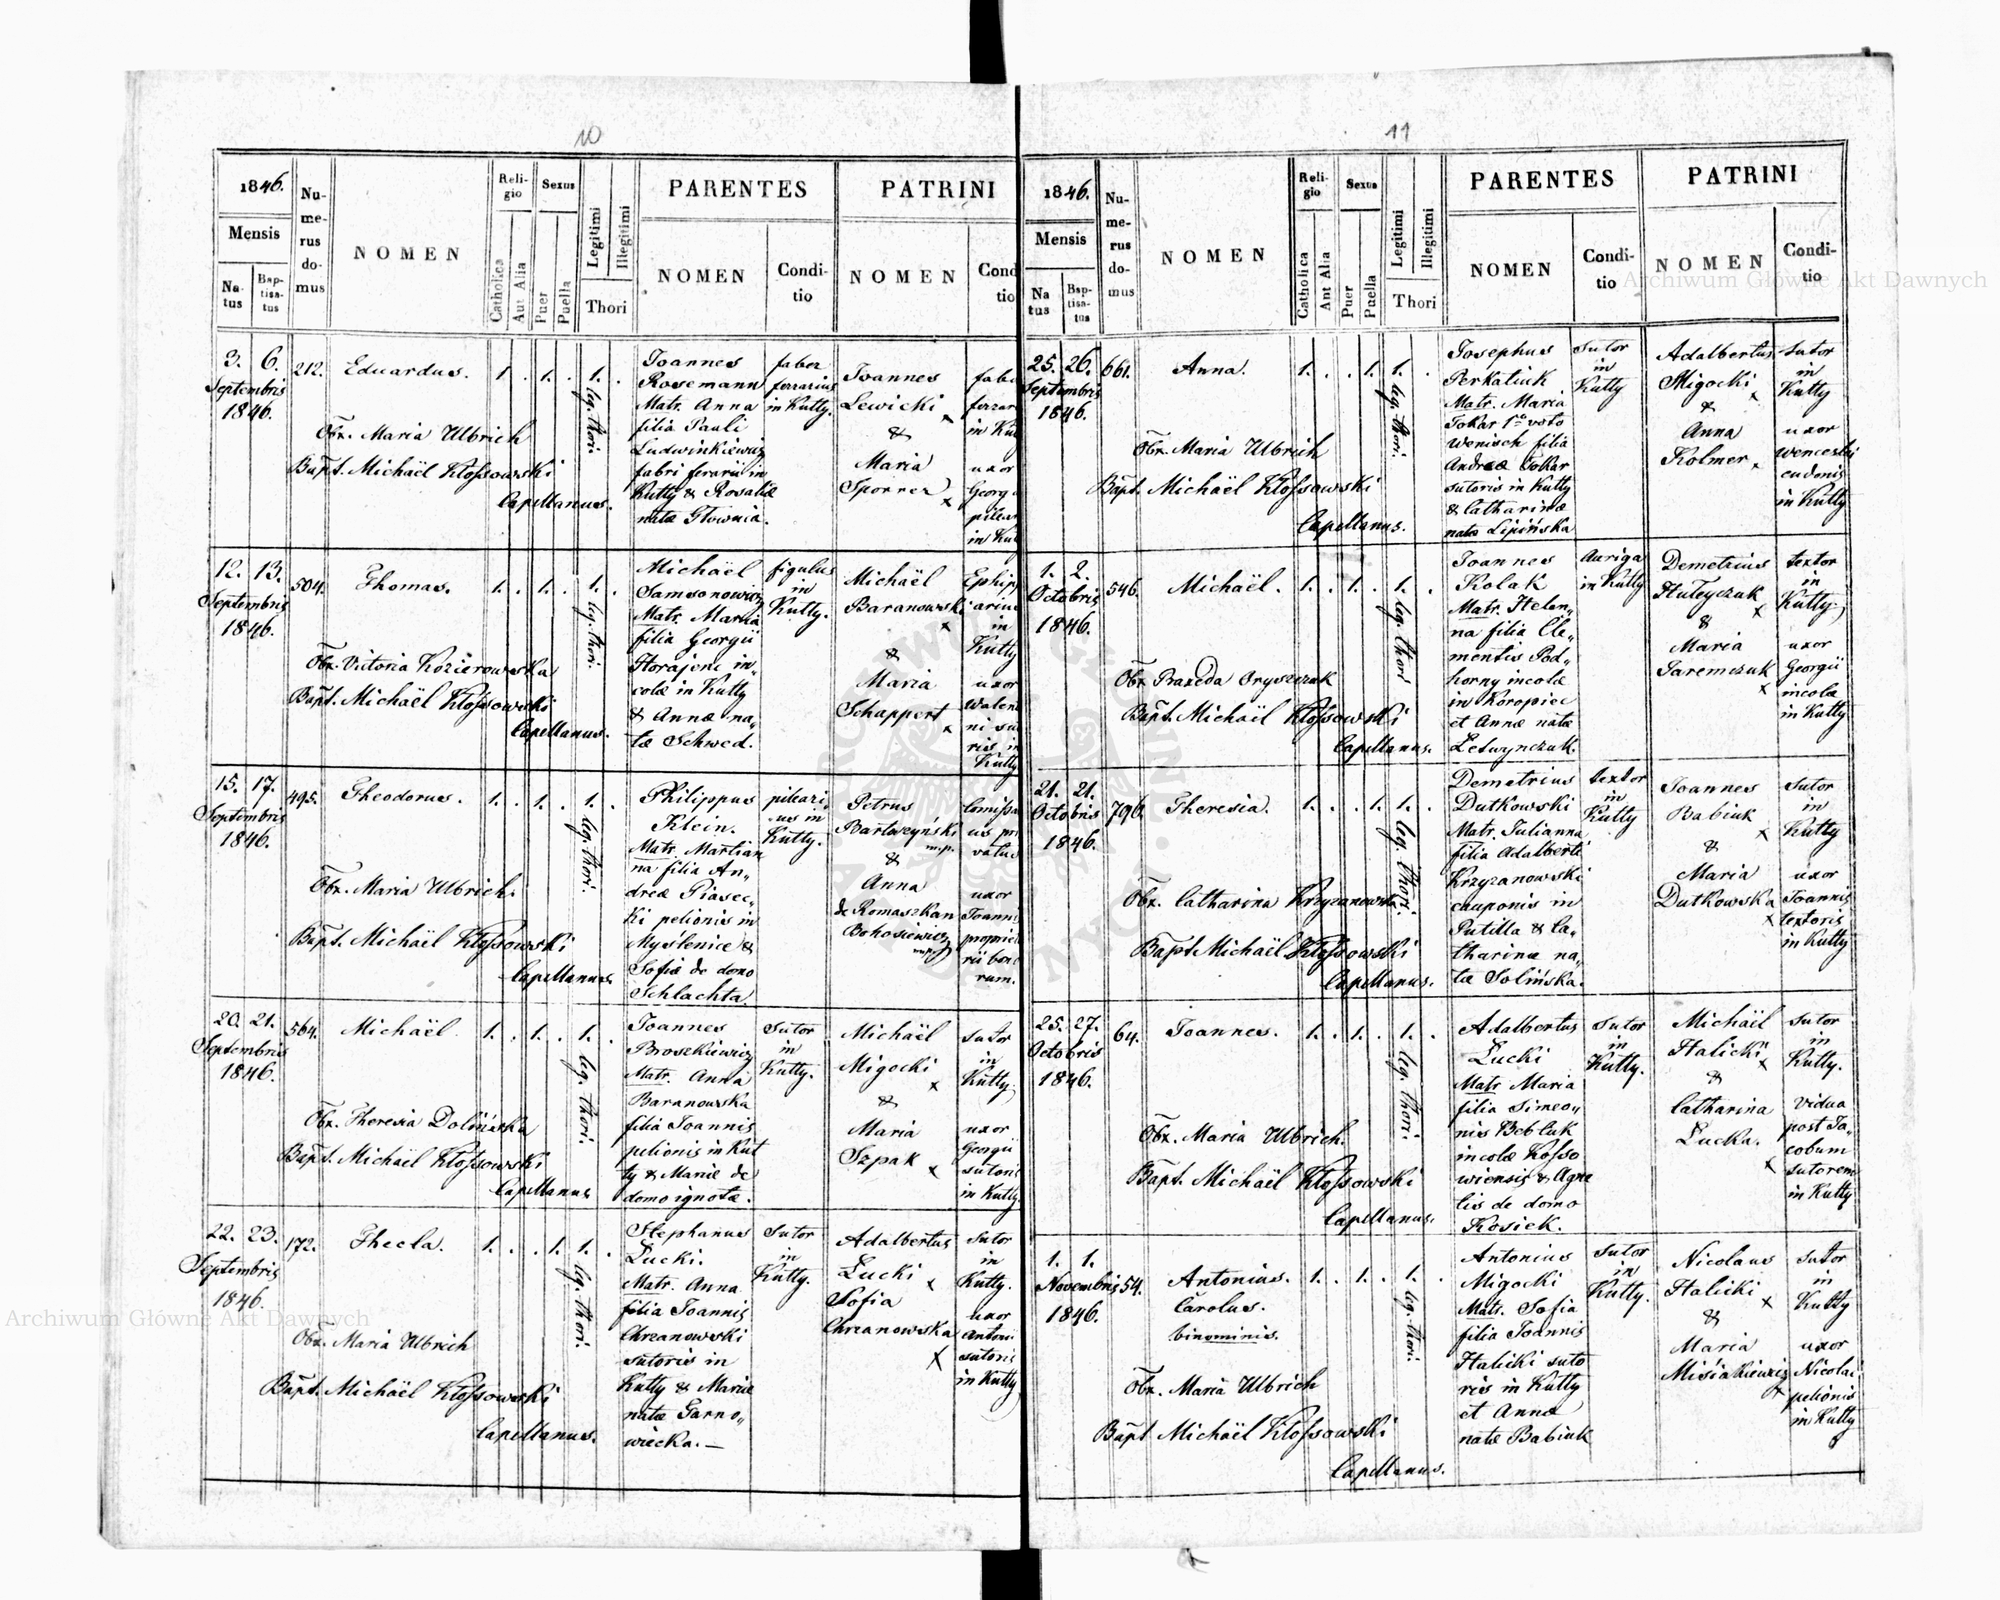 10
1846.
Mensis
Na-
tus
Bap-
tisa-
tus
Nu-
me-
rus
do-
mus
NOMEN
Reli-
gio
Catholica
Aut Alia
Sexus
Puer
Puella
Legitimi
Illegitimi
Thori
PARENTES
NOMEN
Condi-
tio
PATRINI
NOMEN
Cond
tio
3. 6.
Septembris
1846.
212.
Eduardus.
1. . 1. . 1. .
leg. thori.
Obx. Maria Ulbrich
Bapt. Michaël Kłossowski
Capellanus.
Joannes
Rosemann
Matr. Anna
filia Pauli
Ludwinkiewicz
fabri ferrarii in
Kutty & Rosaliæ
natæ Głownia.
faber
ferrarius
in Kutty.
Joannes
Lewicki x
&
Maria
Sporner x
fabe
ferrar
in Kut
uxor
Georg
pilea
in Kut
12. 13.
Septembris
1846.
504.
Thomas.
1. . 1. . 1. .
leg. thori.
Obx. Victoria Kozierowska
Bapt. Michaël Kłossowski
Capellanus.
Michaël
Samsonowicz
Matr. Maria
filia Georgii
Horajeni in„
colæ in Kutty
& Annæ na„
tæ Schwed.
figulus
in
Kutty.
Michaël
Baranowski x
&
Maria
Schappert x
Ephipp
ariu
in
Kutty
uxor
Valen
ni su
ris in
Kutty
15. 17.
Septembris
1846.
495.
Theodorus.
1. . 1. . 1. .
leg. thori.
Obx. Maria Ulbrich.
Bapt. Michaël Kłossowski
Capellanus.
Philippus
Klein.
Matr. Martian
na filia An„
dreæ Piasec„
ki pelionis in
Myślenice &
Sofiæ de domo
Schlachta.
pileari„
us in
Kutty.
Petrus
Bartoszyński
m.p.
&
Anna
de Romaszkan
Bohosiewicz
mp
Comissa
us pri
vatus
uxor
Joanni
proprie
rii bon
rum.
20. 21.
Septembris
1846.
564.
Michaël
1. . 1. . 1. .
leg. thori.
Obx. Theresia Dolińska
Bapt. Michaël Kłossowski
Capellanus
Joannes
Broszkiewicz
Matr. Anna
Baranowska
filia Joannis
pelionis in Kut
ty & Mariæ de
domo ignotæ.
Sutor
in
Kutty.
Michaël
Migocki x
&
Maria
Szpak x
Sutor
in
Kutty
uxor
Georgii
sutoris
in Kutty
22. 23.
Septembris
1846.
172.
Thecla.
1. . . 1. 1. .
leg. thori.
Obx. Maria Ulbrich
Bapt. Michaël Kłossowski
Capellanus.
Stephanus
Łucki.
Matr. Anna
filia Joannis
Chrzanowski
sutoris in
Kutty & Mariæ
natæ Tarno„
wiecka. —
Sutor
in
Kutty.
Adalbertus
Łucki x
Sofia
Chrzanowska
x
Sutor
in
Kutty.
uxor
Antoni
sutoris
in Kutty
11
1846.
Mensis
Na
tus
Bap-
tisa-
tus
Nu-
me-
rus
do-
mus
NOMEN
Reli-
gio
Catholica
Aut Alia
Sexus
Puer
Puella
Legitimi
Illegitimi
Thori
PARENTES
NOMEN
Condi-
tio
PATRINI
NOMEN
Condi-
tio
25. 26.
Septembris
1846.
661.
Anna.
1. . . 1. 1. .
leg. thori.
Obx. Maria Ulbrich
Bapt. Michaël Kłossowski
Capellanus.
Josephus
Perkatiuk
Matr. Maria
Tokar 1o voto
Wenisch filia
Andreæ Tokar
sutoris in Kutty
& Catharinæ
natæ Lipińska
Sutor
in
Kutty
Adalbertus
Migocki x
&
Anna
Kolmer x
Sutor
in
Kutty
uxor
Wencesli
cudonis
in Kutty
1. 2.
Octobris
1846.
546.
Michaël.
1. . 1. . 1. .
leg. thori
Obx. Praxeda Oryszczuk
Bapt. Michaël Kłossowski
Capellanus.
Joannes
Kolak
Matr. Helen„
na filia Cle„
mentis Pod„
horny incolæ
in Koropiec
et Annæ natæ
Letwynczuk.
Auriga
in Kutty
Demetrius
Huteyczuk
x
&
Maria
Jaremczuk
x
textor
in
Kutty
uxor
Georgii
incolæ
in Kutty
21. 21.
Octobris
1846.
796.
Theresia.
1. . . 1. 1. .
leg. thori.
Obx. Catharina Krzyzanowska
Bapt Michaël Kłossowski
Capellanus.
Demetrius
Dutkowski
Matr. Julianna
filia Adalberti
Krzyzanowski
cauponis in
Putilla & Ca„
tharinæ na„
tæ Solińska.
textor
in
Kutty
Joannes
Babiuk
x
&
Maria
Dutkowska
x
Sutor
in
Kutty
uxor
Joannis
textoris
in Kutty
25. 27.
Octobris
1846.
64.
Joannes.
1. . 1. . 1. .
leg. thori.
Obx. Maria Ulbrich.
Bapt. Michaël Kłossowski
Capellanus.
Adalbertus
Łucki
Matr Maria
filia Simeo„
nis Bebluk
incolæ Kosso
wiensis & Agne
tis de domo
Kosiek.
Sutor
in
Kutty.
Michaël
Halicki x
&
Catharina
Łucka.
x
Sutor
in
Kutty.
Vidua
post Ja„
cobum
sutorem
in Kutty
1. 1.
Novembris
1846.
54.
Antonius.
Carolus.
binominis.
1. . 1. . 1. .
leg. thori.
Obx. Maria Ulbrich
Bapt Michaël Kłossowski
Capellanus.
Antonius
Migocki
Matr. Sofia
filia Joannis
Halicki suto
ris in Kutty
et Annæ
natæ Babiuk
Sutor
in
Kutty.
Nicolaus
Halicki
x
&
Maria
Misiakiewicz
x
Sutor
in
Kutty
uxor
Nicolai
pelionis
in Kutty
Archiwum Główne Akt Dawnych
Archiwum Główne Akt Dawnych